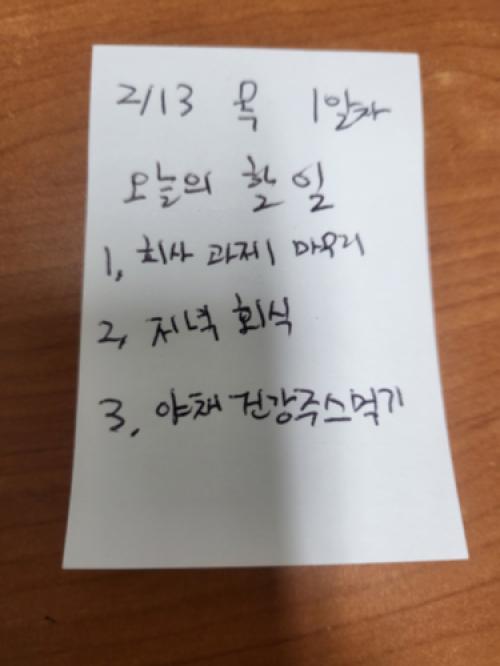 2/13 목 1일차
오늘의 할 일
1, 회사 과제 마무리
2, 저녁 회식
3, 야채 건강주스먹기